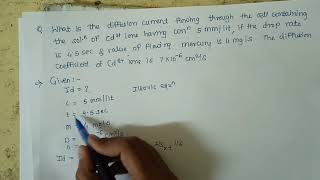 Q. What is the diffusion current flowing through the cell containing
the solⁿ of Cd²⁺ ions having conⁿ 5 mmol/lit, if the drop rate
is 4.5 sec & value of flowing mercury is 4 mg/s. The diffusion
coefficient of Cd²⁺ ions is 7×10⁻⁶ cm²/s
→ Given :-
Id = ? Ilkovic eqⁿ
C = 5 mmol/lit
t = 4.5 sec
m mg/s
D = cm²/s
Id = 2/3 × t 1/6